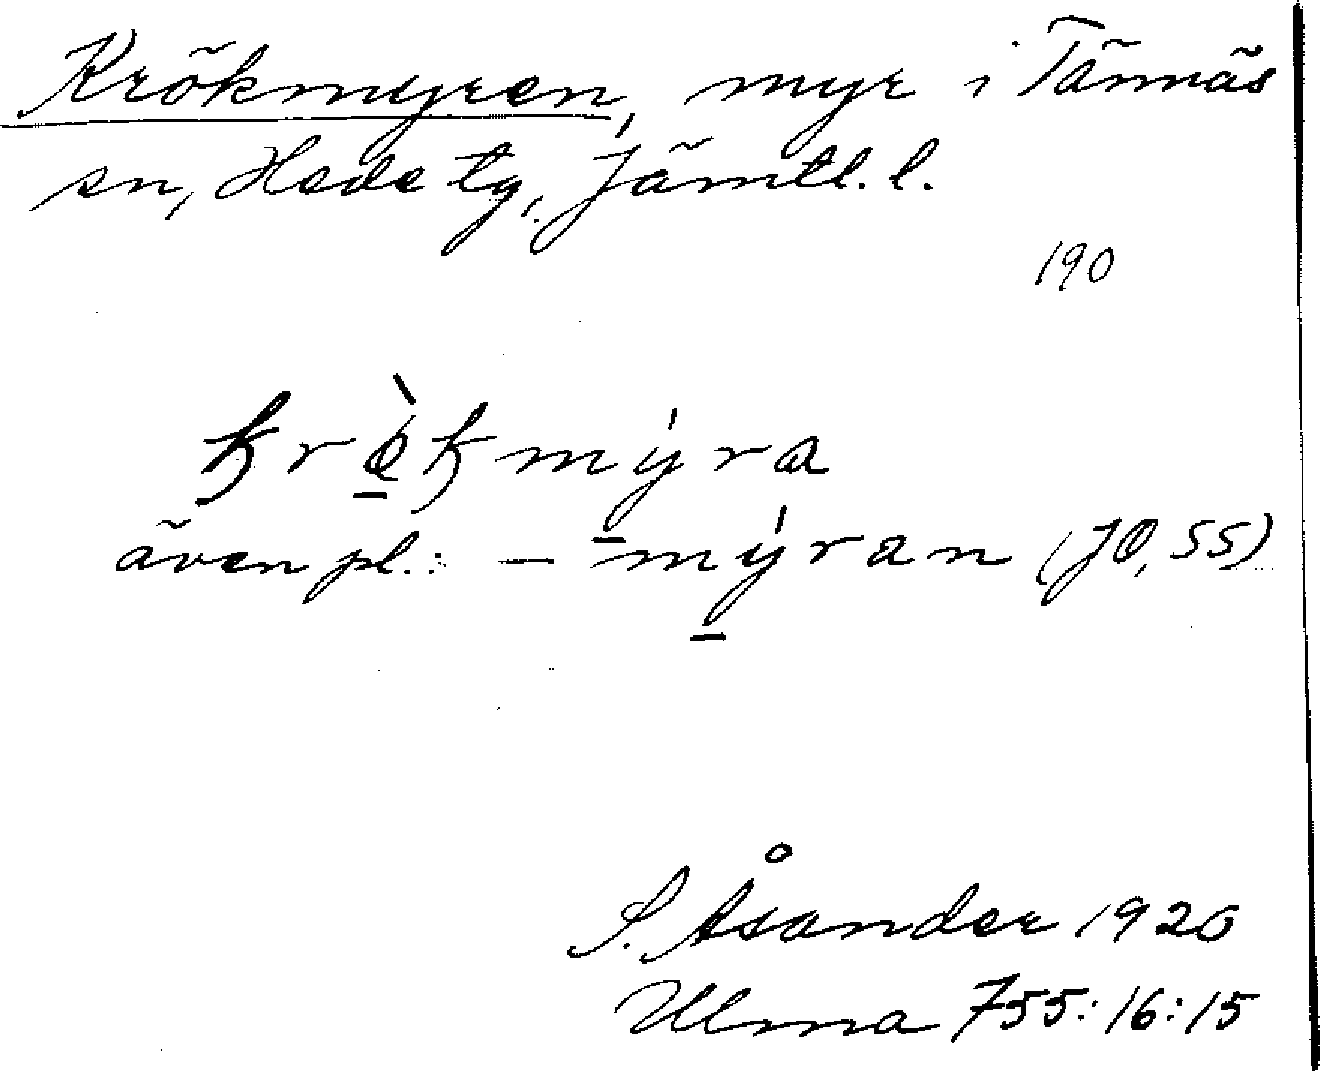 Krökmyren, myr i Tännäs
sn, Hede tg, Jämtl. l.
190
krø̀kmýra
även pl.: — mýran (JÖ, 55)
S. Åsander 1920
Ulma 755:16:15